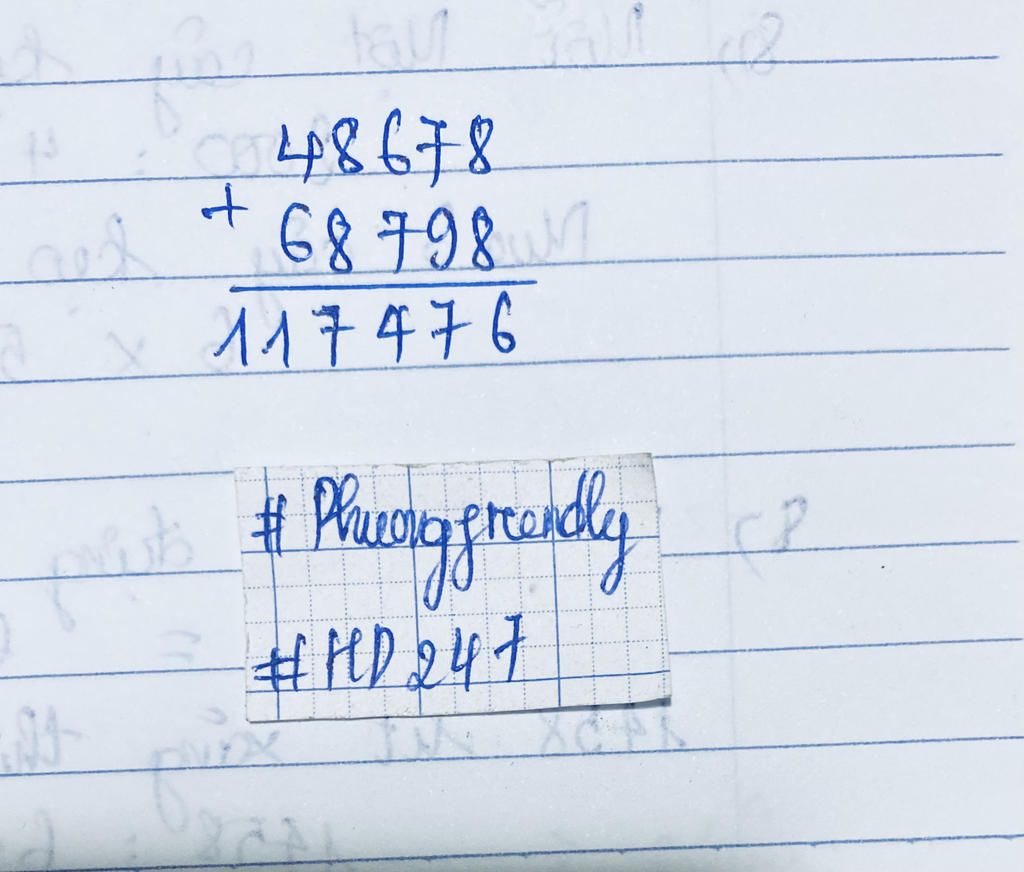 48678
+
68798
117476
# Phuonggrendly
#HD247